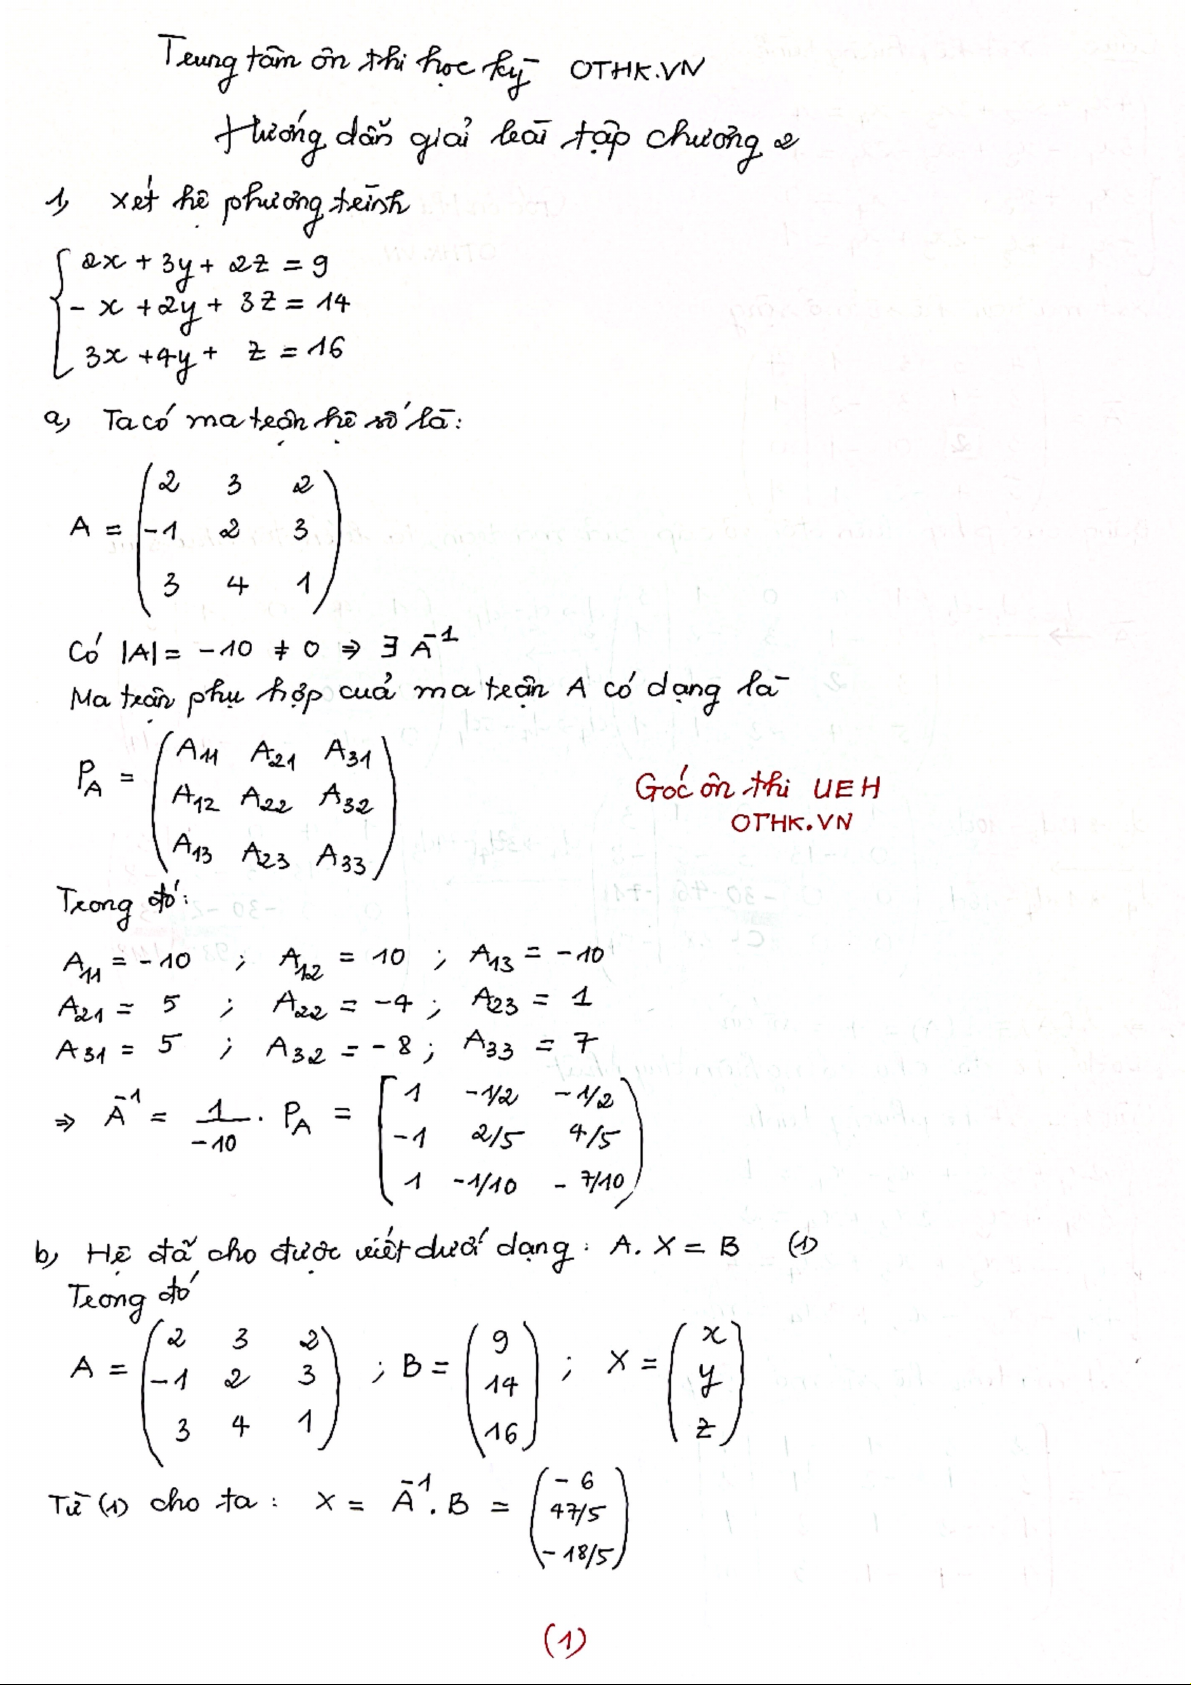 Trung tâm ôn thi học kỳ OTHK.VN
Hướng dẫn giải bài tập chương 2
1) Xét hệ phương trình
2x + 3y + 2z = 9
- x + 2y + 3z = 14
3x + 4y + z = 16
a) Ta có ma trận hệ số là:
A = ( 2 3 2
-1 2 3
3 4 1 )
Có |A| = -10 ≠ 0 ⇒ ∃ A⁻¹
Ma trận phụ hợp của ma trận A có dạng là
P_A = ( A₁₁ A₂₁ A₃₁
A₁₂ A₂₂ A₃₂
A₁₃ A₂₃ A₃₃ )
Góc ôn thi UEH
OTHK.VN
Trong đó:
A₁₁ = -10 ; A₁₂ = 10 ; A₁₃ = -10
A₂₁ = 5 ; A₂₂ = -4 ; A₂₃ = 1
A₃₁ = 5 ; A₃₂ = -8 ; A₃₃ = 7
⇒ A⁻¹ = 1/-10 . P_A = [ 1 -1/2 -1/2
-1 2/5 4/5
1 -1/10 -7/10 )
b) Hệ đã cho được viết dưới dạng: A. X = B (1)
Trong đó
A = ( 2 3 2
-1 2 3
3 4 1 ) ; B = ( 9
14
16 ) ; X = ( x
y
z )
Từ (1) cho ta : X = A⁻¹. B = ( -6
47/5
-18/5 )
(1)